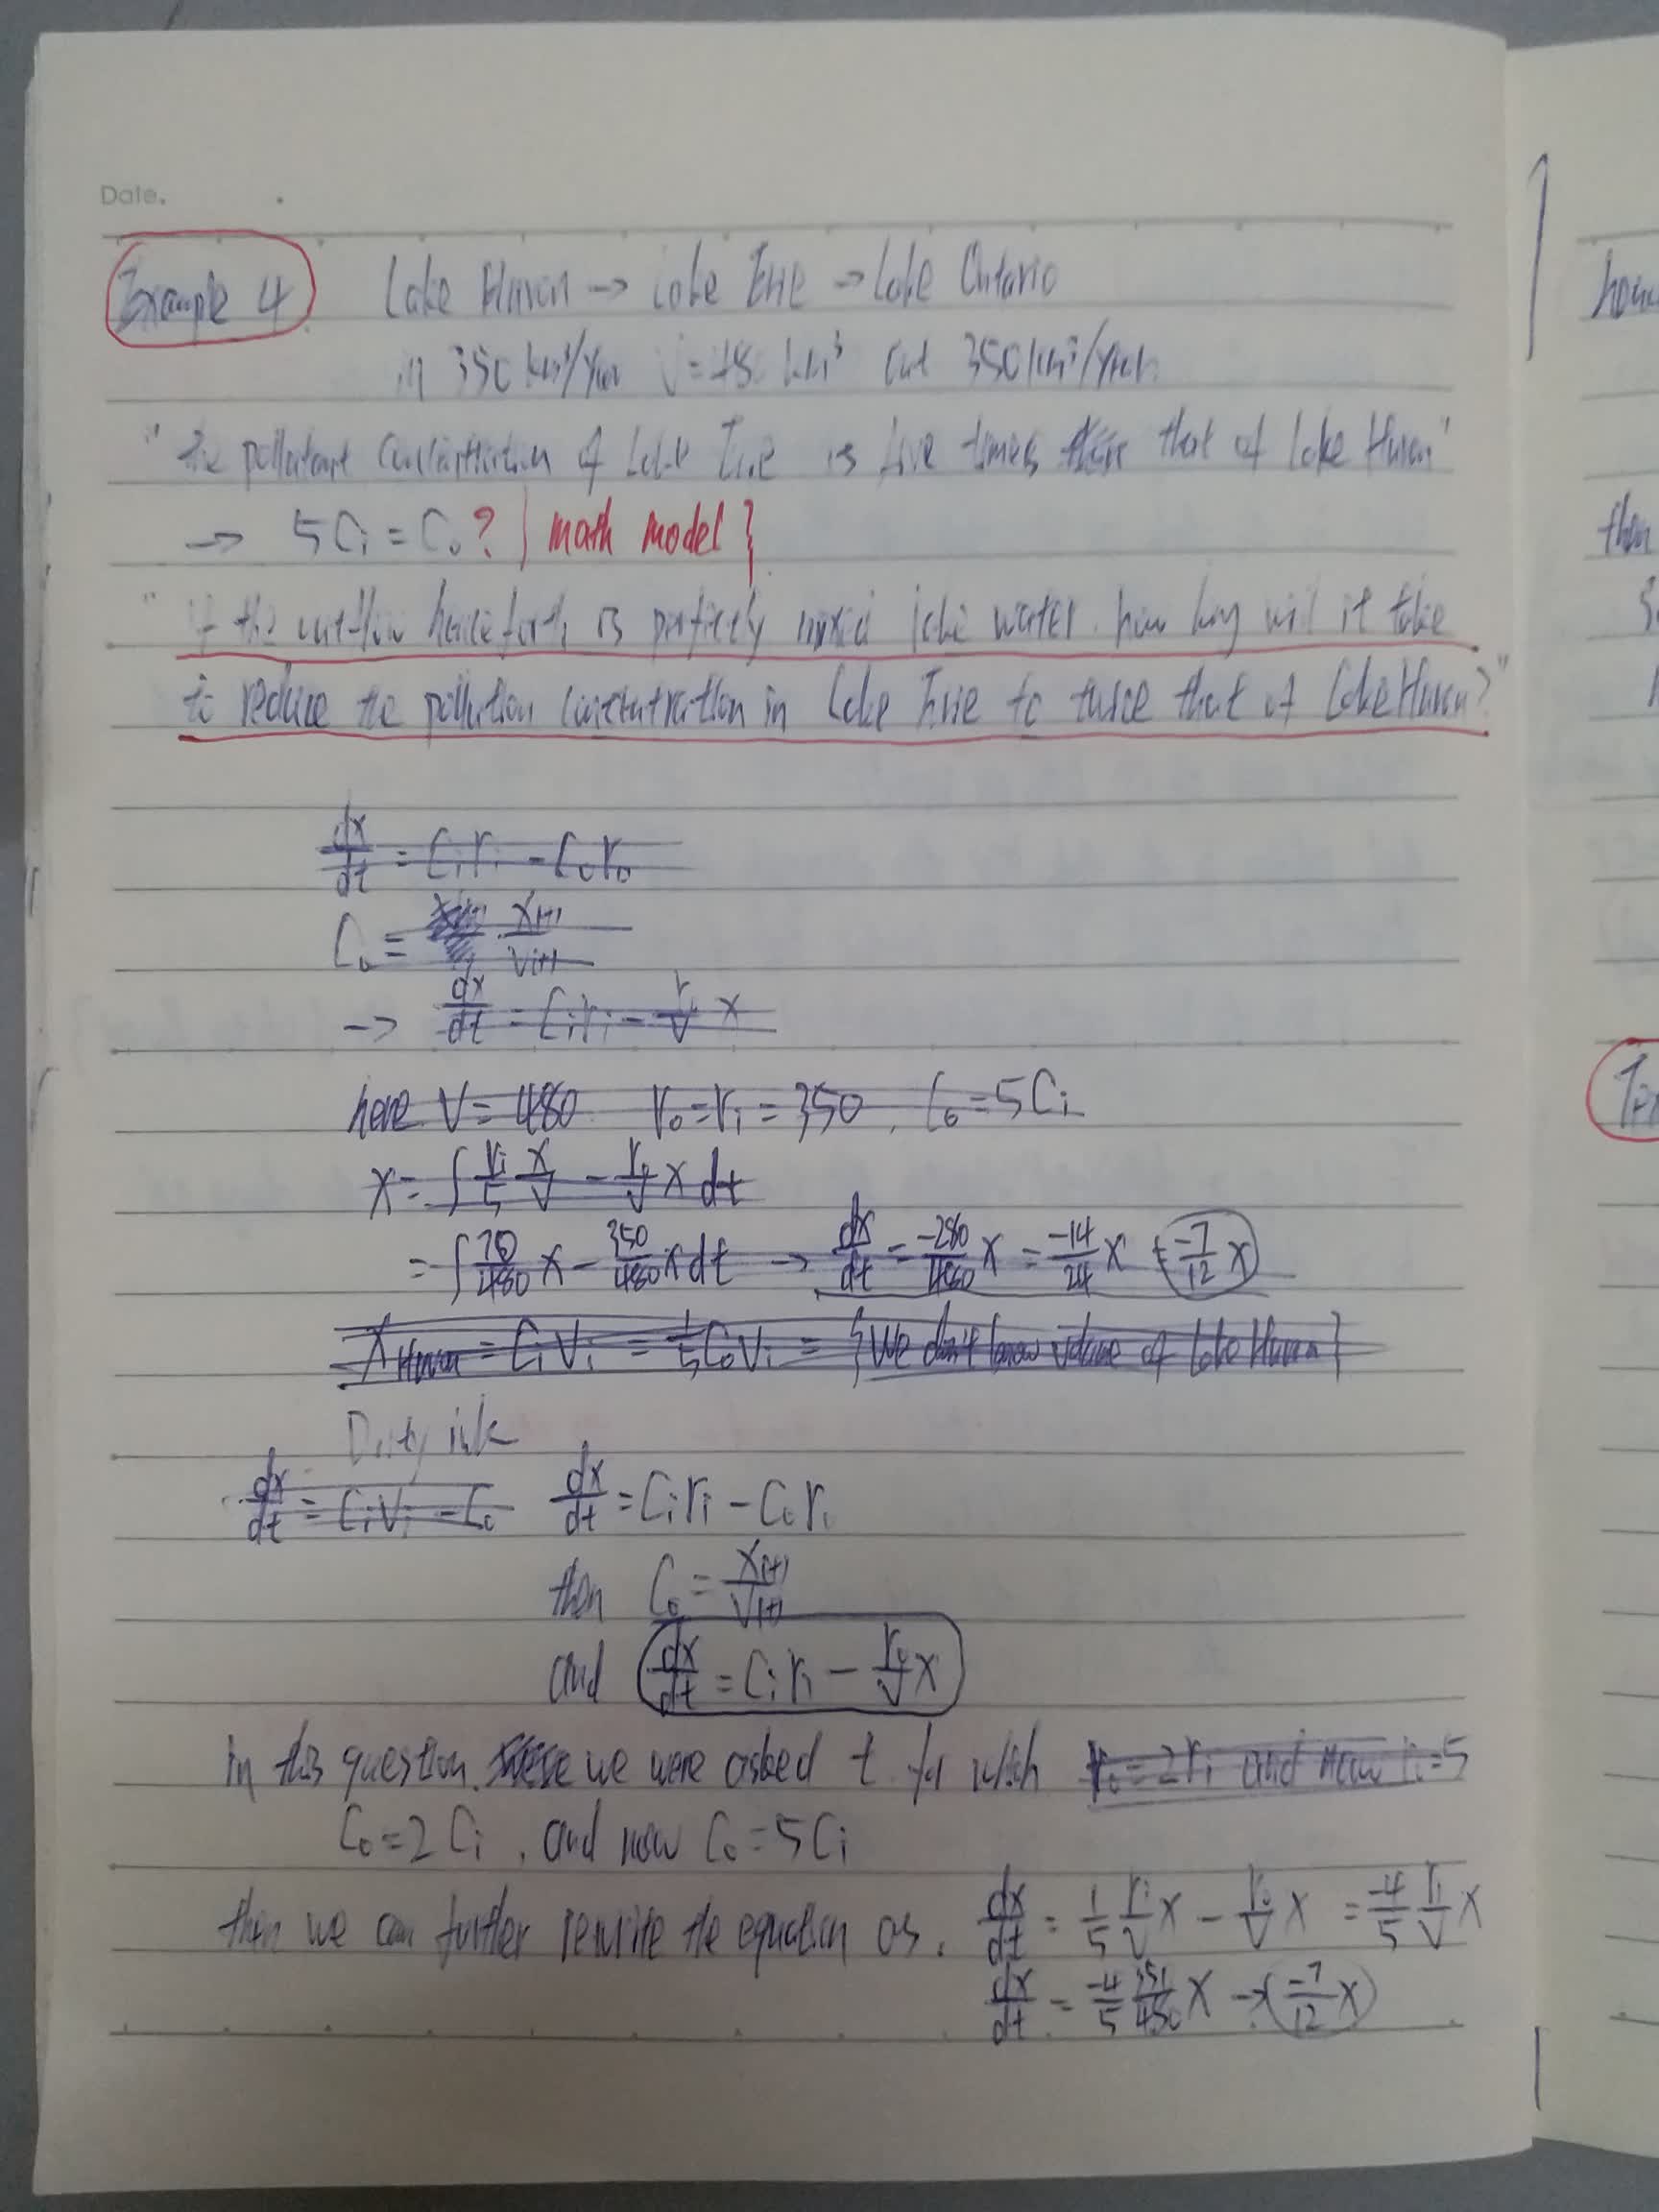 Date.
Example 4 Lake Huron → Lake Erie → Lake Ontario
in 350 km³/year V = 480 km³ out 350 km³/year
"the pollutant concentration of Lake Erie is five times that of Lake Huron"
→ 5Ci = Co? { math model }
"if the outflow henceforth is perfectly mixed lake water. how long will it take
to reduce the pollution concentration in Lake Erie to twice that of Lake Huron?"
dx/dt = Ciri - Coro
Co = x(t)/V(t)
→ dx/dt = Ciri - ro/V x
here V = 480 ro = ri = 350, Co = 5Ci
x = ∫ ri/5 x/V - ro/V x dt
= ∫ 70/480 x - 350/480 x dt → dx/dt = -280/480 x = -14/24 x = -7/12 x
xHuron = CiVi = 1/5 CoVi = {We don't know volume of Lake Huron}
Dirty ink
dx/dt = CiVi - Co dx/dt = Ciri - Coro
then Co = x(t)/V(t)
and dx/dt = Ciri - ro/V x
in this question. we were asked t for which ro = 2ri and now ri = 5
Co = 2Ci, and now Co = 5Ci
then we can further rewrite the equation as. dx/dt = 1/5 ri/V x - ro/V x = -4/5 ri/V x
dx/dt = -4/5 350/480 x → -7/12 x
then